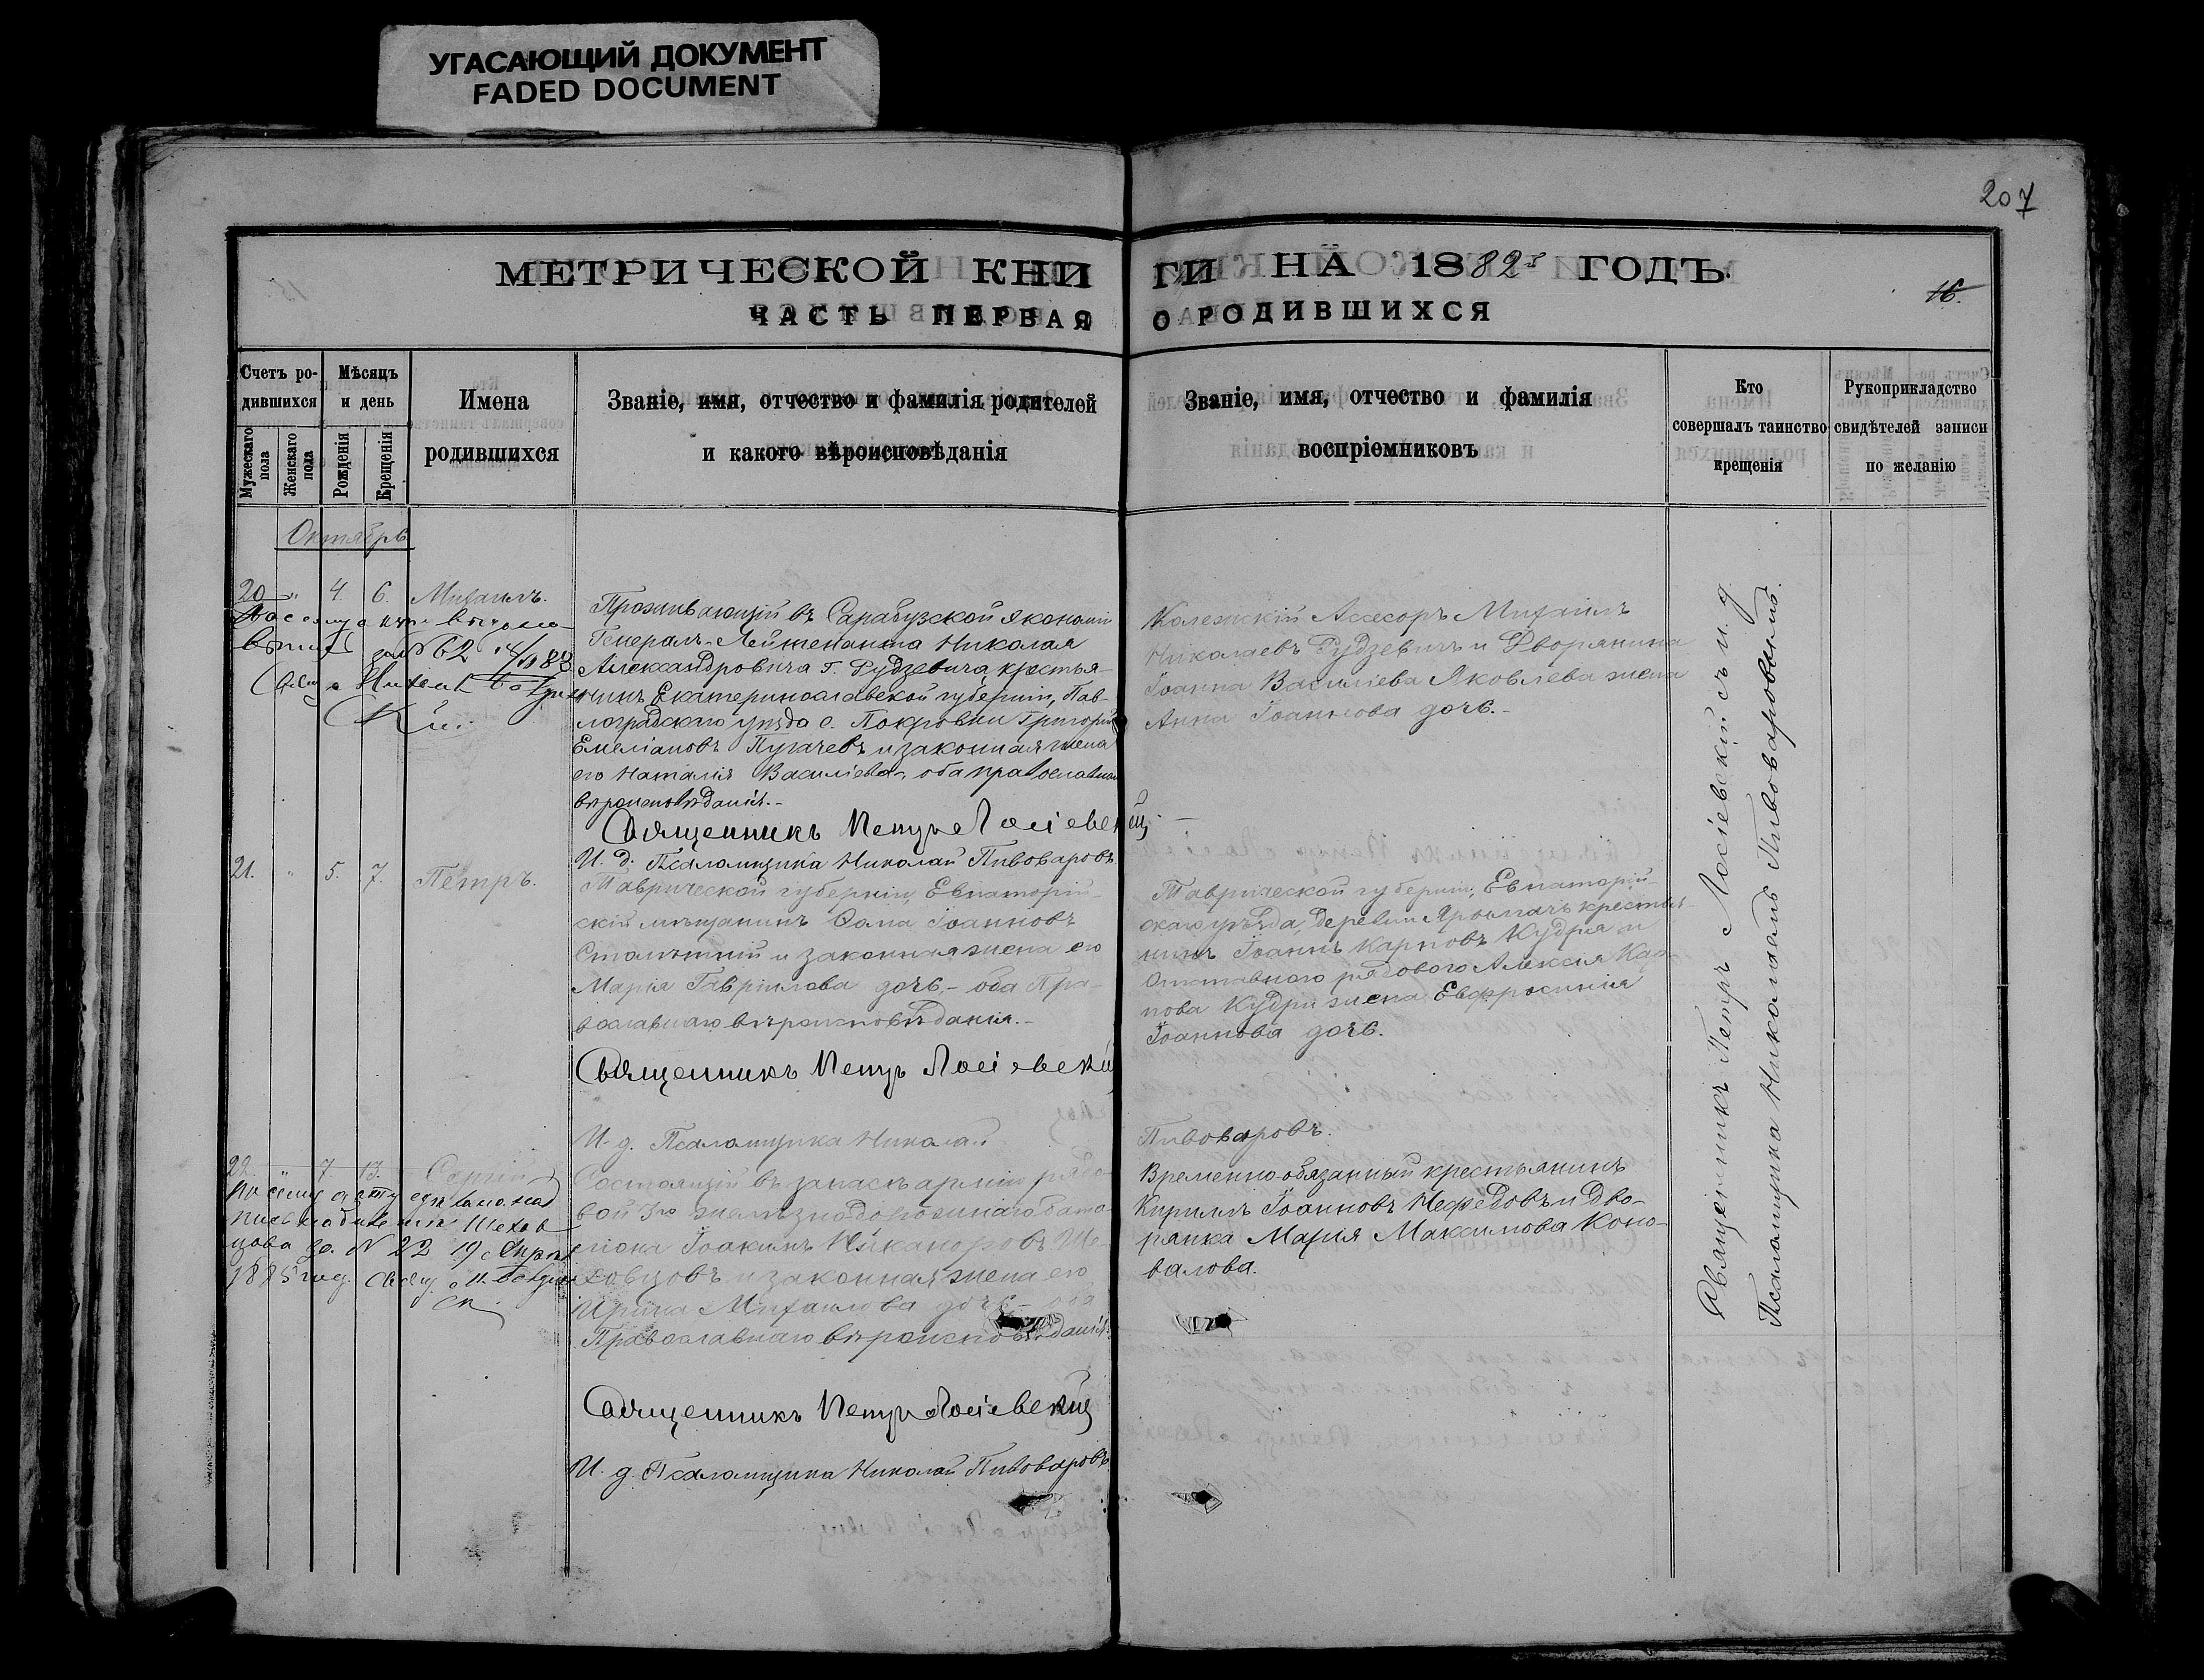 УГАСАЮЩИЙ ДОКУМЕНТ
FADED DOCUMENT
207
МЕТРИЧЕСКОЙ КНИГИ НА 1882й ГОДЪ.
16.
ЧАСТЬ ПЕРВАЯ О РОДИВШИХСЯ
Счетъ родившихся
Мужескаго пола
Женскаго пола
Мѣсяцъ и день
Рожденія
Крещенія
Имена родившихся
Званіе, имя, отчество и фамилія родителей
и какого вѣроисповѣданія
Званіе, имя, отчество и фамилія
воспріемниковъ
Кто
совершалъ таинство
крещенія
Рукоприкладство
свидѣтелей записи
по желанію
Октябрь
20 " 4. 6. Михаилъ.
за № 62
Проживающій въ Сарабузской экономіи
Генералъ-Лейтенанта Николая
Александровича Г. Рудзевича, крестья-
нинъ Екатеринославской губерніи, Пав-
лоградского уѣзда с. Покровки Григорій
Емеліановъ Пугачевъ и законная жена
его Наталія Василіева, оба православнаго
вѣроисповѣданія.-
Священникъ Петръ Лосіевскій
И. д. Псаломщика Николай Пивоваровъ
Колежскій Ассесоръ Михаилъ
Николаевъ Рудзевичъ и Дворянина
Іоанна Василіева Яковлева жена
Анна Іоаннова дочь.-
21. " 5. 7. Петръ.
Таврической губерніи, Евпаторій-
скій мѣщанинъ Ѳома Іоанновъ
Столѣтній и законная жена его
Марія Гавріилова дочь,- оба Пра-
вославнаго вѣроисповѣданія.-
Священникъ Петръ Лосіевскій
И. д. Псаломщика Николай Пивоваровъ.
Таврической губерніи, Евпаторій-
скаго уѣзда, деревни крестья-
нинъ Іоаннъ Карповъ Кудря и
Отставного рядового Алексія Кар-
пова Кудри жена Евфросинія
Іоаннова дочь.
22. 7 13. Сергій
По сему акту
за № 22 19
1895 год. Свящ.
Состоящій въ запасѣ арміи рядо-
вой 3го желѣзно-дорожнаго бата-
ліона Іоакимъ Никаноровъ Ше-
ховцовъ и законная жена его
Ирина Михаилова дочь - оба
Православнаго вѣроисповѣданія.
Священникъ Петръ Лосіевскій
И. д. Псаломщика Николай Пивоваровъ
Временно-обязанный крестьянинъ
Кириллъ Іоанновъ Нефедовъ и Дво-
рянка Марія Максимова Коно-
валова.
Священникъ Петръ Лосіевскій съ и. д.
Псаломщика Николаемъ Пивоваровымъ.